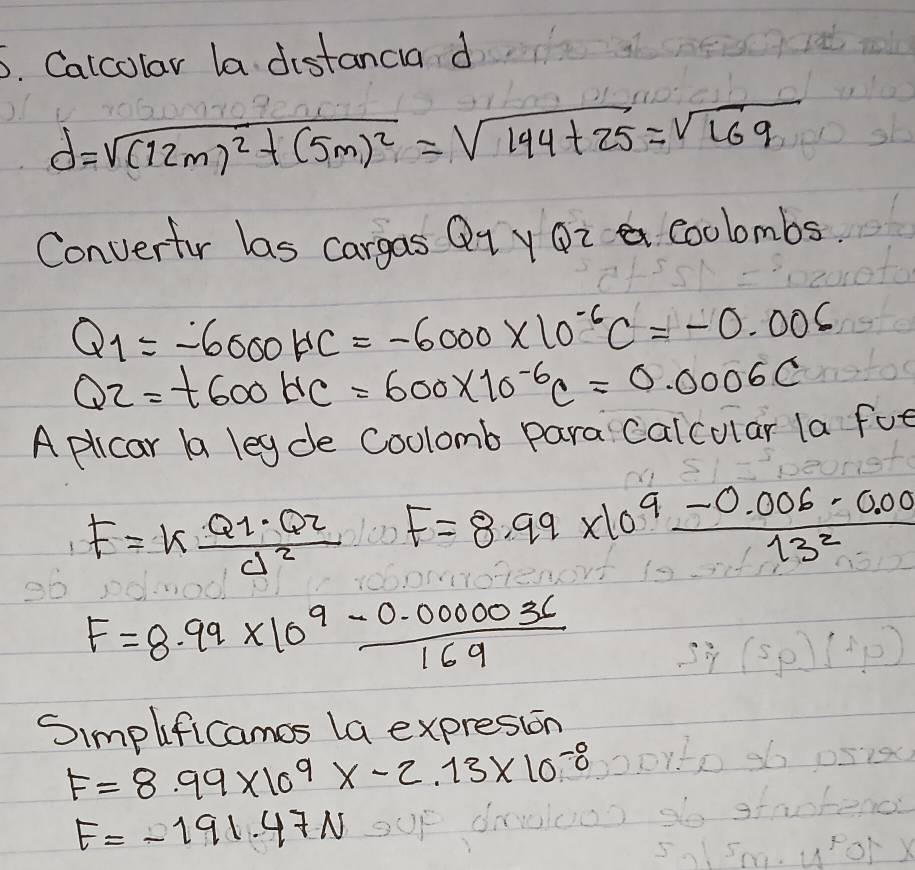 5. Calcular la distancia d
d=√(12m)²+(5m)² = √144+25 = √169
Convertir las cargas Q1 y Q2 a Coulombs.
Q1 = -6000 μC = -6000 × 10⁻⁶ C = -0.006
Q2 = +600 μC = 600×10⁻⁶ C = 0.0006 C
Aplicar la ley de Coulomb para Calcular la fue
F = K Q1·Q2 / d² F = 8.99 ×10⁹ -0.006 · 0.00 / 13²
F = 8.99 ×10⁹ -0.0000036 / 169
Simplificamos la expresión
F = 8.99×10⁹ × -2.13×10⁻⁸
F = -191.47 N